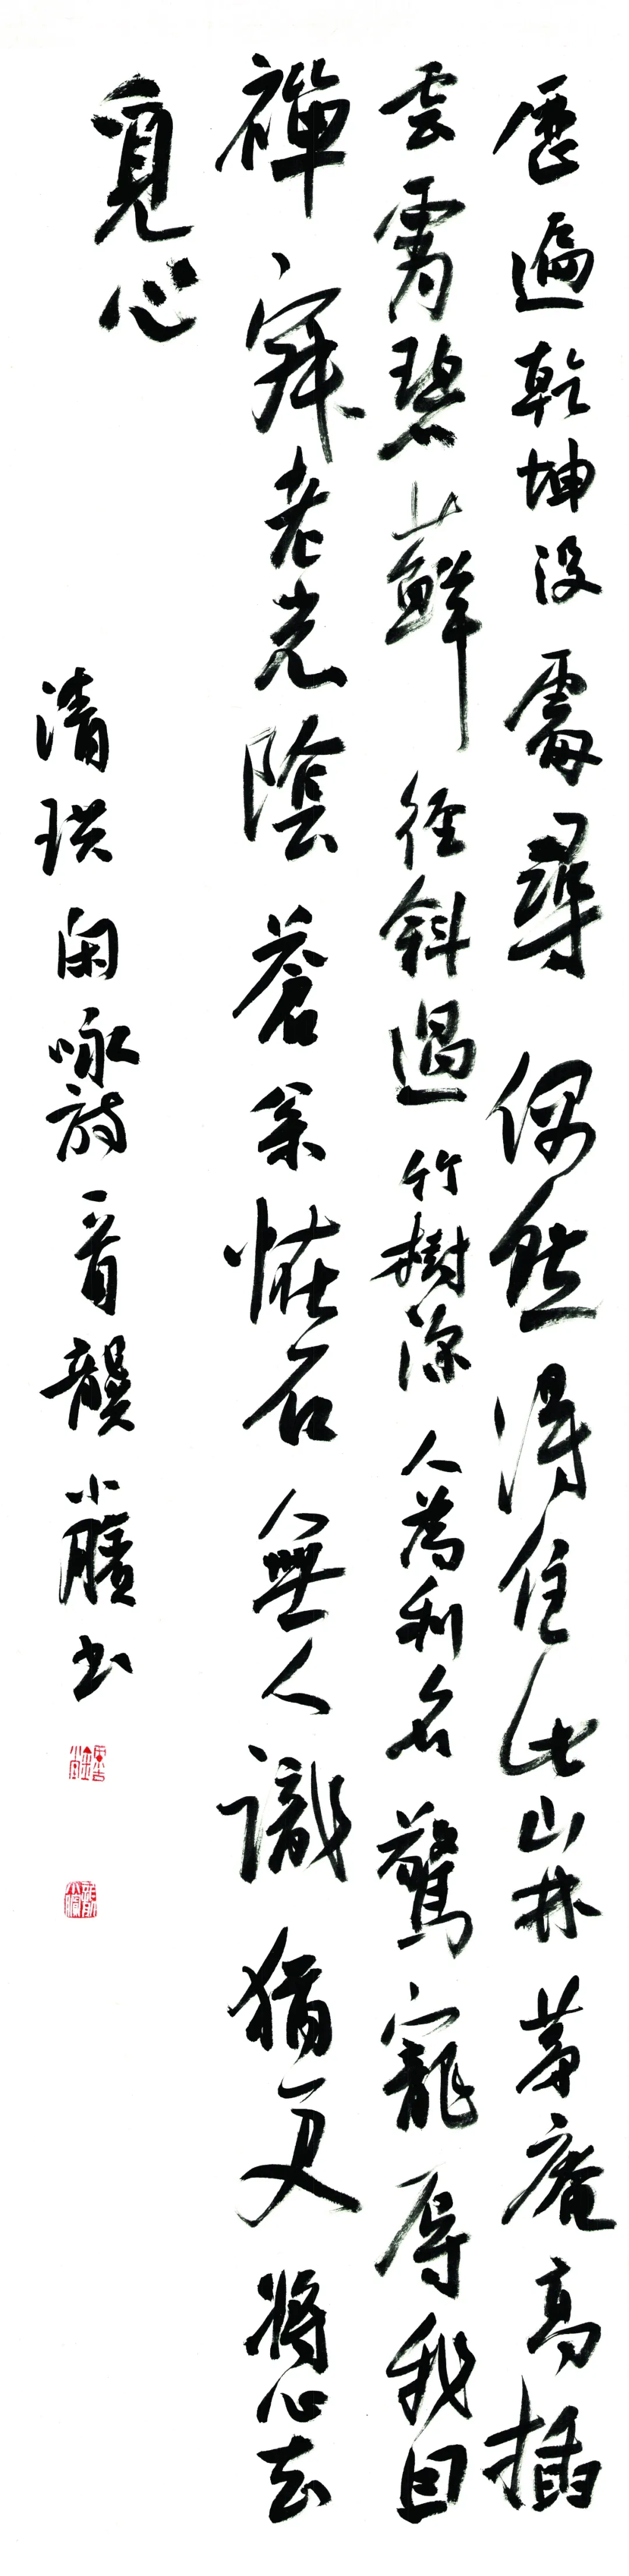 歷遍乾坤没處尋偶然得住此山林茅庵高插
雲霄碧蘚徑斜過竹樹深人為利名驚寵辱我因
禪寂老光陰蒼松恠石無人識猶更將心去
覓心
清珙閑咏詩一首龔小書